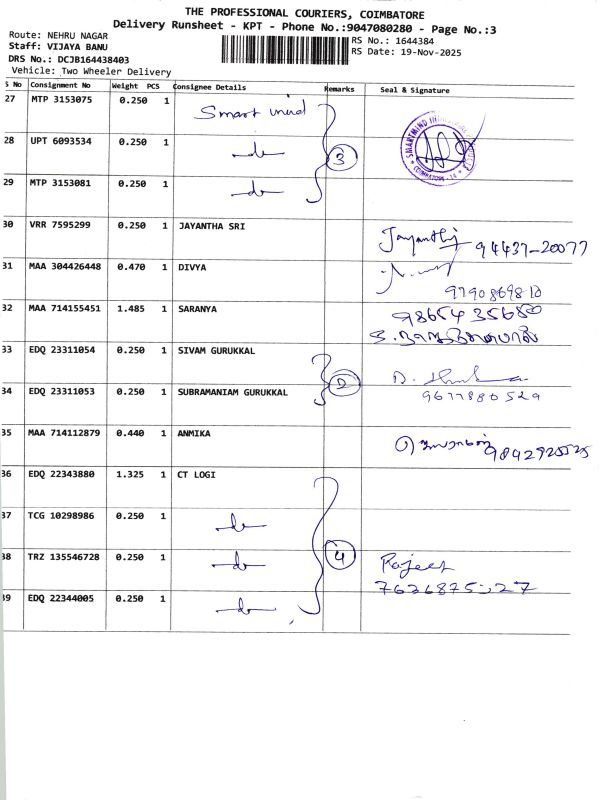 THE PROFESSIONAL COURIERS, COIMBATORE
Delivery Runsheet - KPT - Phone No.:9047080280 - Page No.:3
Route: NEHRU NAGAR
RS No.: 1644384
Staff: VIJAYA BANU
RS Date: 19-Nov-2025
DRS No.: DCJB164438403
Vehicle: Two Wheeler Delivery
S No Consignment No Weight PCS Consignee Details Remarks Seal & Signature
27 MTP 3153075 0.250 1 Smart mind
28 UPT 6093534 0.250 1 -do- 3
29 MTP 3153081 0.250 1 -do-
30 VRR 7595299 0.250 1 JAYANTHA SRI Jayanthi 94437-20077
31 MAA 304426448 0.470 1 DIVYA
9790869810
32 MAA 714155451 1.485 1 SARANYA 9865435680
33 EDQ 23311054 0.250 1 SIVAM GURUKKAL
34 EDQ 23311053 0.250 1 SUBRAMANIAM GURUKKAL 2
9677880529
35 MAA 714112879 0.440 1 ANMIKA 9842920525
36 EDQ 22343880 1.325 1 CT LOGI
37 TCG 10298986 0.250 1 -do-
38 TRZ 135546728 0.250 1 -do- 4 Rajeet
39 EDQ 22344005 0.250 1 -do-